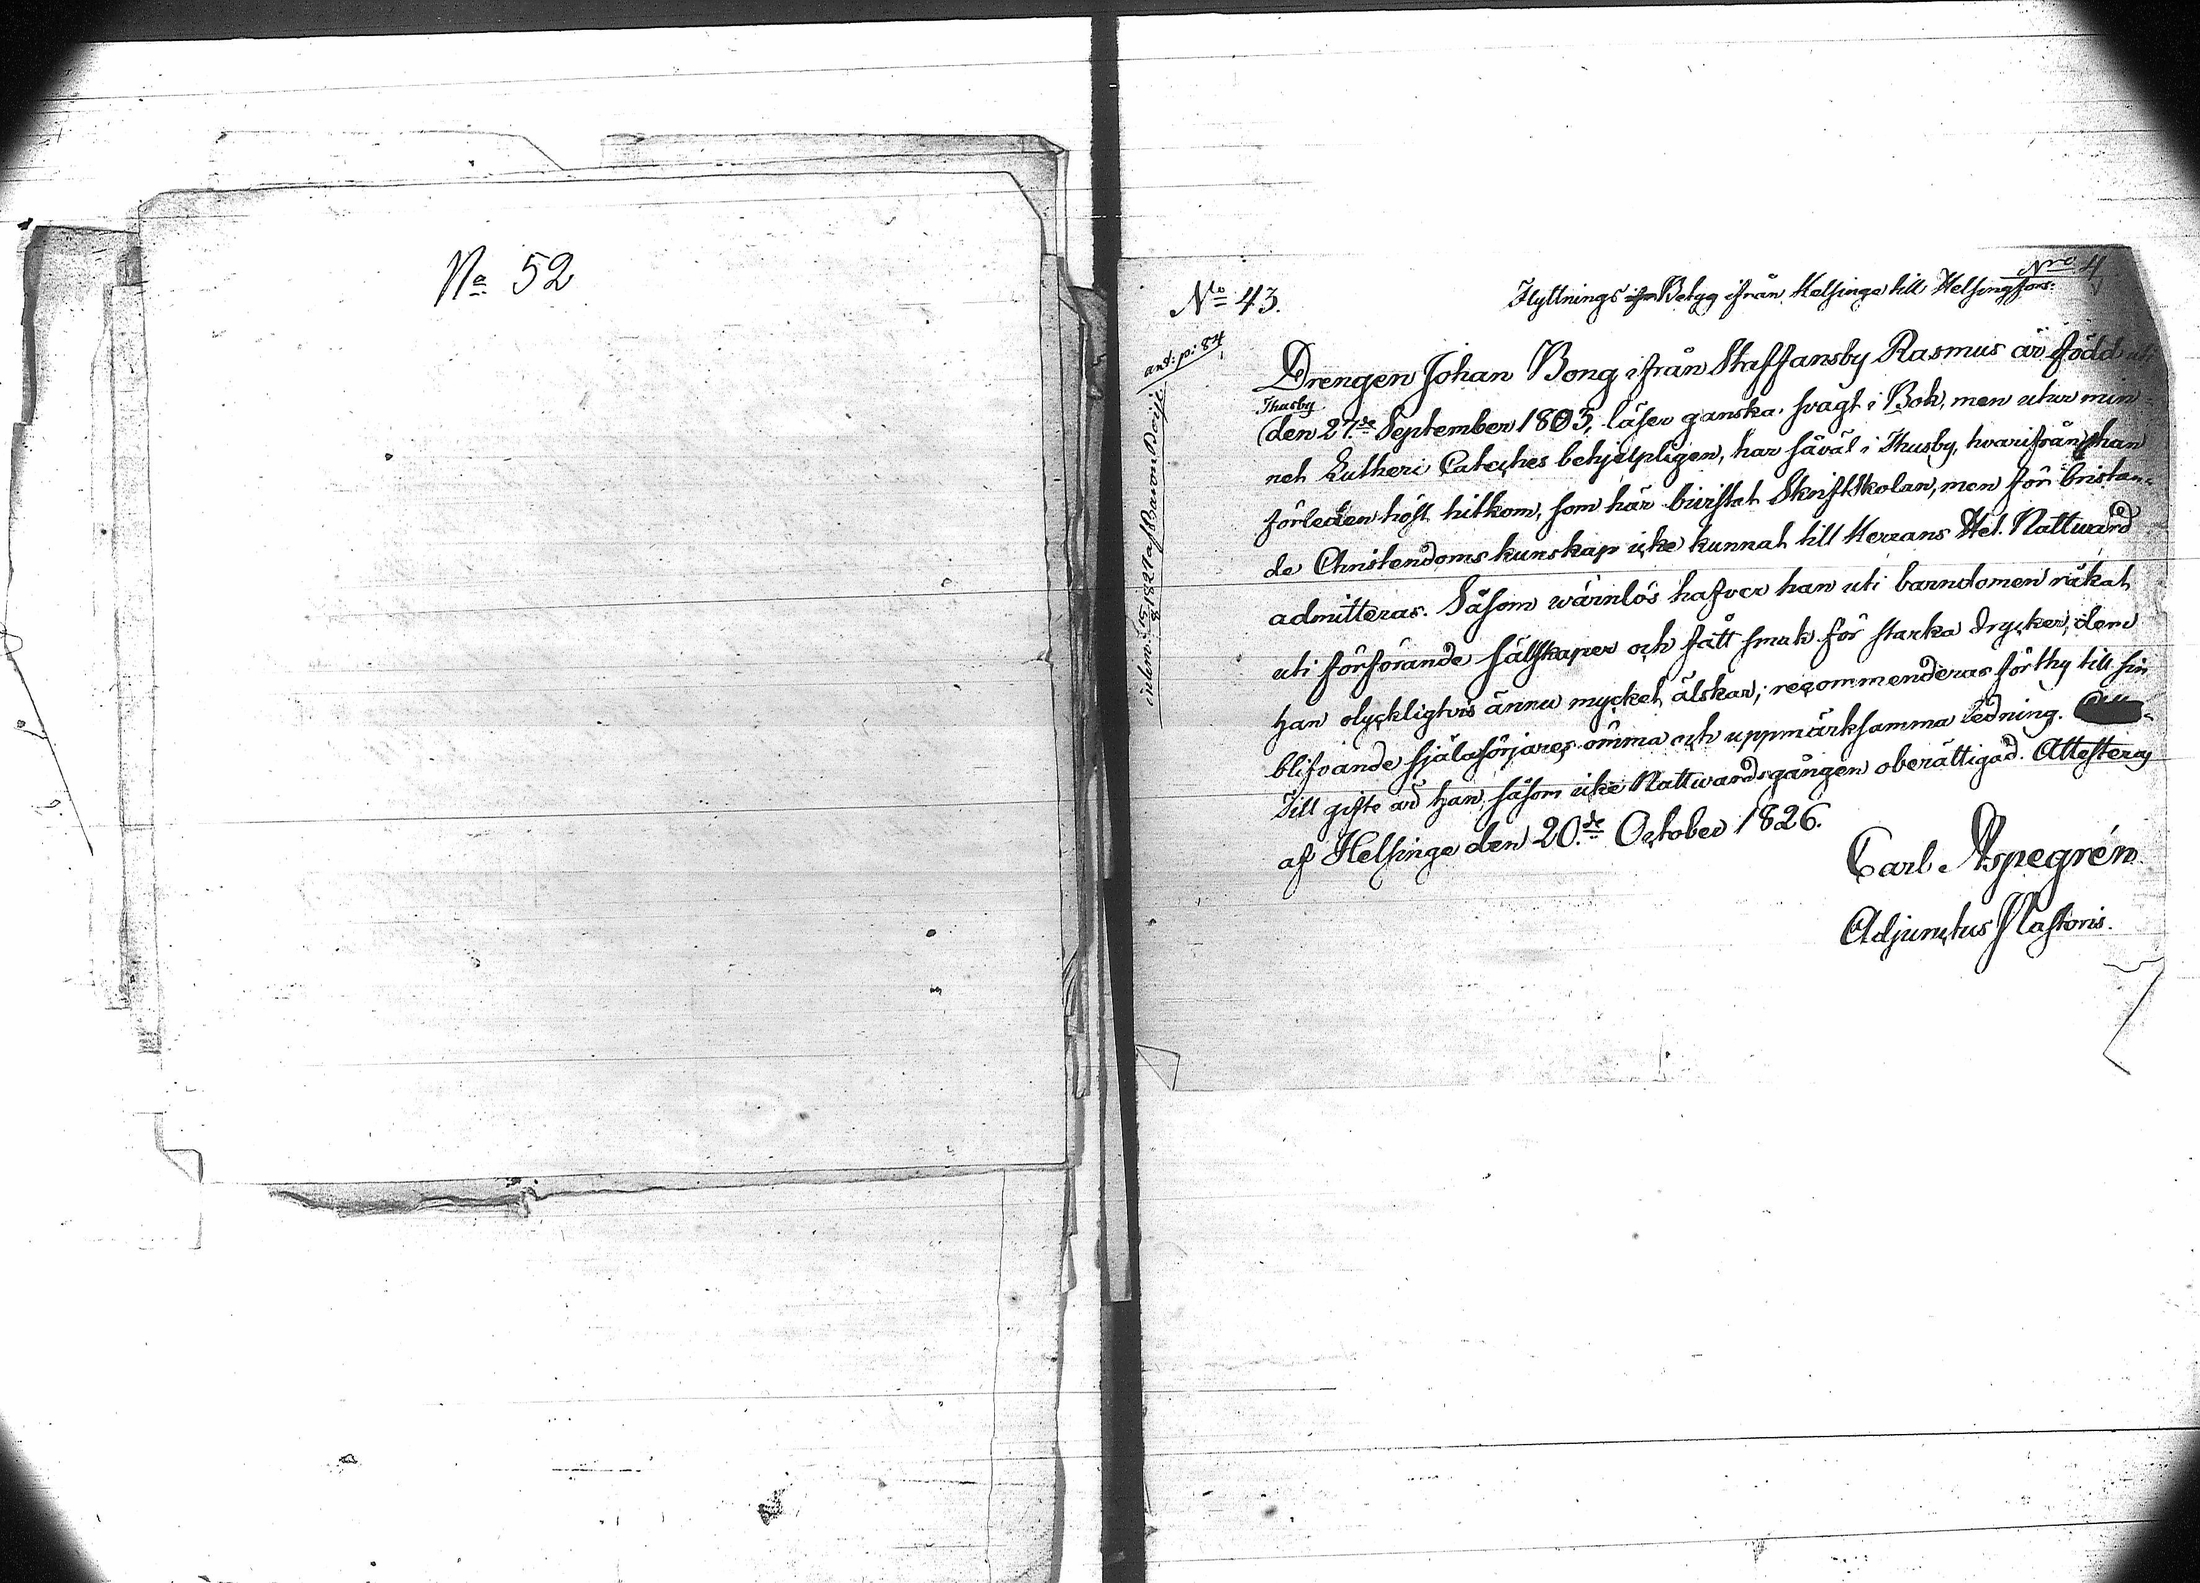 No 52
Nro 4
No 43.
Flyttnings Betyg ifrån Helsinge till Helsingfors.
ant: p: 84
Drengen Johan Bong ifrån Staffansby Rasmus är född uti
Thusby
den 27de September 1803, läser ganska svagt i Bok, men utur min-
net Lutheri Cateches behjelpligen, har såväl i Thusby, hvarifrån han
förleden höst hitkom, som här bivistat Skriftskolan, men för bristan-
de Christendoms kunskap icke kunnat till Herrans Hel. Nattward
admitteras. Såsom wärnlös hafver han uti barndomen råkat
uti förförande sälskaper och fått smak för starka drycker, dem
han olyckligtvis ännu mycket älskar; recommenderas förthy till sin
blifvande själasörjares ömma och uppmärksamma ledning.
Till gifte är han, såsom icke Nattwardsgången oberättigad. Attesteras
af Helsinge den 20de October 1826.
Carl Aspegrén
Adjunctus Pastoris.
inlemn: d. 15/8 1827 af Baron